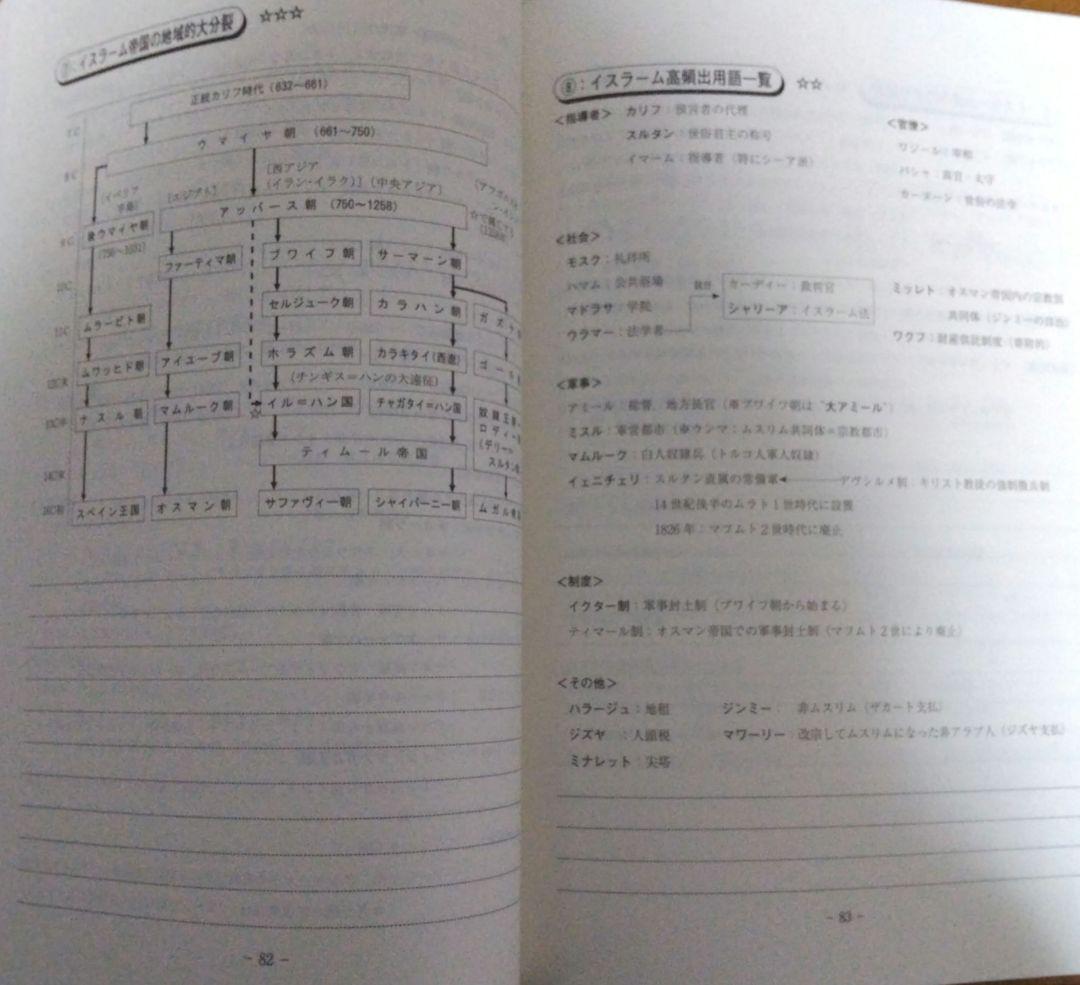 イスラーム帝国の地域的大分裂 ☆☆☆
正統カリフ時代（632～661）
7C
ウマイヤ朝（661～750）
8C
［西アジア
（イラン・イラク）］（中央アジア）
（イベリア
半島）
［エジプト］
アッバース朝（750～1258）
9C
後ウマイヤ朝
(756～1031)
ファーティマ朝
ブワイフ朝
サーマーン朝
10C
セルジューク朝
カラハン朝
ガズナ
11C
ムラービト朝
ムワッヒド朝
アイユーブ朝
ホラズム朝
カラキタイ(西遼)
ゴール
12C末
（チンギス＝ハンの大遠征）
ナスル朝
マムルーク朝
☆
イル＝ハン国
チャガタイ＝ハン国
奴隷王朝
ロディー
(デリー＝
スルタン
13C中
ティムール帝国
14C末
スペイン王国
オスマン朝
サファヴィー朝
シャイバーニー朝
ムガル帝
16C初
- 82 -
⑧：イスラーム高頻出用語一覧 ☆☆
＜指導者＞ カリフ：預言者の代理
スルタン：世俗君主の称号
イマーム：指導者（特にシーア派）
＜官僚＞
ワジール：宰相
パシャ：高官・太守
カーヌーン：世俗の法令
＜社会＞
モスク：礼拝所
ハマム：公共浴場
マドラサ：学院
ウラマー：法学者
カーディー：裁判官
シャリーア：イスラーム法
ミッレト：オスマン帝国内の宗教別
共同体（ジンミーの自治）
ワクフ：財産供託制度（寄附的）
＜軍事＞
アミール：総督、地方長官（※ブワイフ朝は“大アミール”）
ミスル：軍営都市（※ウンマ：ムスリム共同体＝宗教都市）
マムルーク：白人奴隷兵（トルコ人軍人奴隷）
イェニチェリ：スルタン直属の常備軍 デヴシルメ制：キリスト教徒の強制徴兵制
14世紀後半のムラト1世時代に設置
1826年：マフムト2世時代に廃止
＜制度＞
イクター制：軍事封土制（ブワイフ朝から始まる）
ティマール制：オスマン帝国での軍事封土制（マフムト2世により廃止）
＜その他＞
ハラージュ：地租 ジンミー： 非ムスリム（ザカート支払）
ジズヤ ：人頭税 マワーリー：改宗してムスリムになった非アラブ人（ジズヤ支払）
ミナレット：尖塔
- 83 -